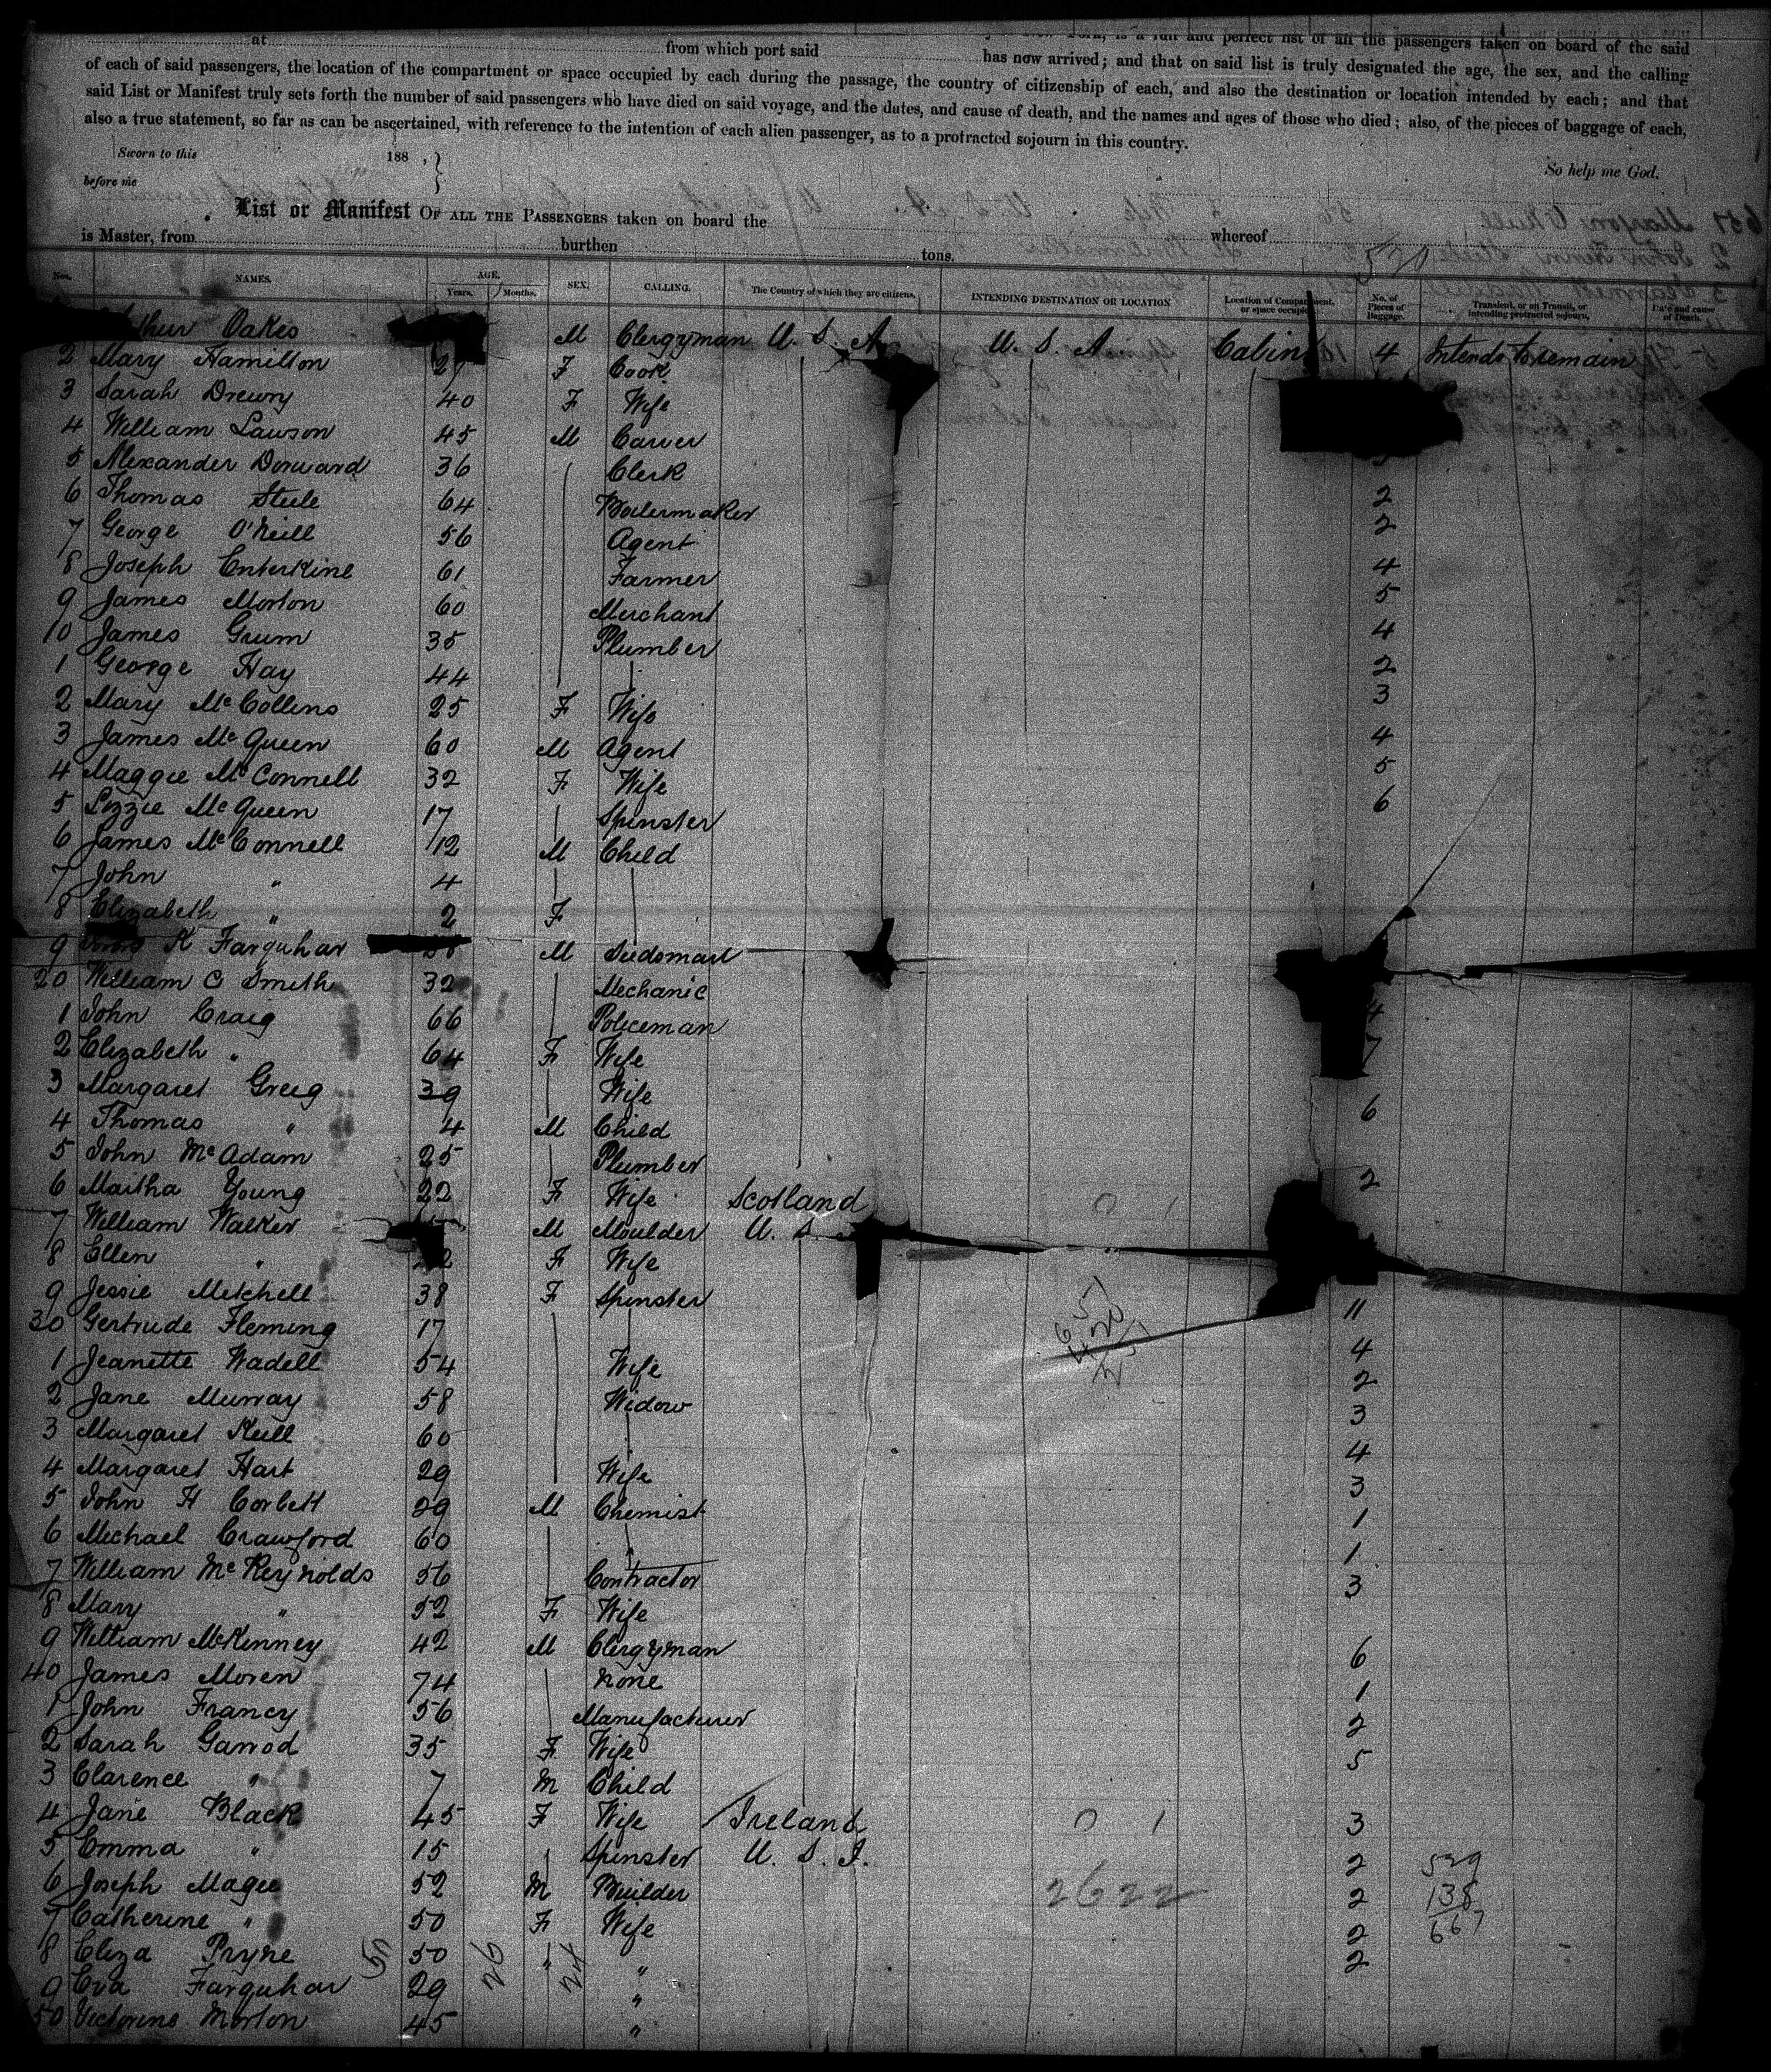 at from which port said
York, is a full and perfect list of all the passengers taken on board of the said
has now arrived; and that on said list is truly designated the age, the sex, and the calling
of each of said passengers, the location of the compartment or space occupied by each during the passage, the country of citizenship of each, and also the destination or location intended by each; and that
said List or Manifest truly sets forth the number of said passengers who have died on said voyage, and the dates, and cause of death, and the names and ages of those who died; also, of the pieces of baggage of each,
also a true statement, so far as can be ascertained, with reference to the intention of each alien passenger, as to a protracted sojourn in this country.
Sworn to this 188 , So help me God.
before me
List or Manifest OF ALL THE PASSENGERS taken on board the whereof
is Master, from burthen tons.
520
Nos. NAMES. AGE. Years. Months. SEX. CALLING. The Country of which they are citizens. INTENDING DESTINATION OR LOCATION Location of Compartment, or space occupied No. of Pieces of Baggage. Transient, or on Transit, or intending protracted sojourn. Date and cause of Death.
Oakes M Clergyman U. S. A U. S. A Cabin 4 Intends to remain
2 Mary Hamilton F Cook
3 Sarah Drewry 40 F Wife
4 William Lawson 45 M Carver
5 Alexander Dorward 36 Clerk
6 Thomas Steele 64 Boilermaker 2
7 George O'Neill 56 Agent 2
8 Joseph Enterkine 61 Farmer 4
9 James Morton 60 Merchant 5
10 James Grum 35 Plumber 4
1 George Hay 44 2
2 Mary McCollins 25 F Wife 3
3 James McQueen 60 M Agent 4
4 Maggie McConnell 32 F Wife 5
5 Lizzie McQueen 17 Spinster 6
6 James McConnell /12 M Child
7 John " 4
8 Elizabeth " 2 F
9 K Farquhar M Seedsman
20 William C Smith 32 Mechanic
1 John Craig 66 Policeman 4
2 Elizabeth " 64 F Wife 7
3 Margaret Greig 39 Wife
4 Thomas " 4 M Child 6
5 John McAdam 25 Plumber
6 Martha Young 22 F Wife Scotland 0 1 2
7 William Walker M Moulder U. S.
8 Ellen " F Wife
9 Jessie Mitchell 38 F Spinster
30 Gertrude Fleming 17 11
1 Jeanette Wadell 54 Wife 4
2 Jane Murray 58 Widow 2
3 Margaret Keill 60 3
4 Margaret Hart 29 Wife 4
5 John H Corbett 29 M Chemist 3
6 Michael Crawford 60 1
7 William McReynolds 56 Contractor 1
8 Mary " 52 F Wife 3
9 William McKinney 42 M Clergyman
40 James Moren 74 None 6
1 John Francy 56 Manufacturer 1
2 Sarah Garrod 35 F Wife 2
3 Clarence " 7 M Child 5
4 Jane Black 45 F Wife Ireland 0 1 3
5 Emma " 15 Spinster U. S. A. 2 529
6 Joseph Magee 52 M Builder 2622 2 138
7 Catherine " 50 F Wife 2 667
8 Eliza Pryne 50 50 26 " 24 " 2
9 Eva Farquhar 29 "
50 Victorine Morton 45 "